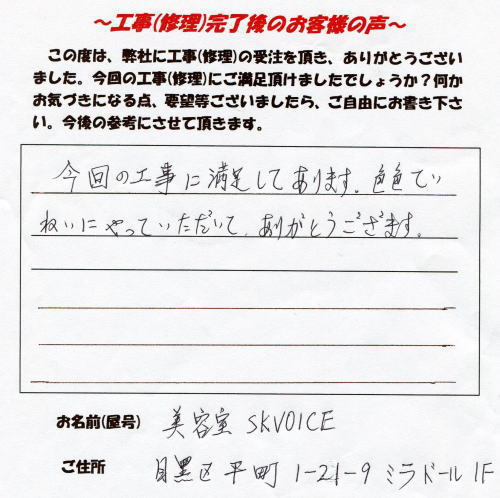 ～工事(修理)完了後のお客様の声～
この度は、弊社に工事(修理)の受注を頂き、ありがとうござい
ました。今回の工事(修理)にご満足頂けましたでしょうか？何か
お気づきになる点、要望等ございましたら、ご自由にお書き下さ
い。今後の参考にさせて頂きます。
今回の工事に満足してあります。色色てい
ねいにやっていただいて、ありがとうござます。
お名前(屋号) 美容室 SKVOICE
ご住所 目黒区平町 1-21-9 ミラドール 1F